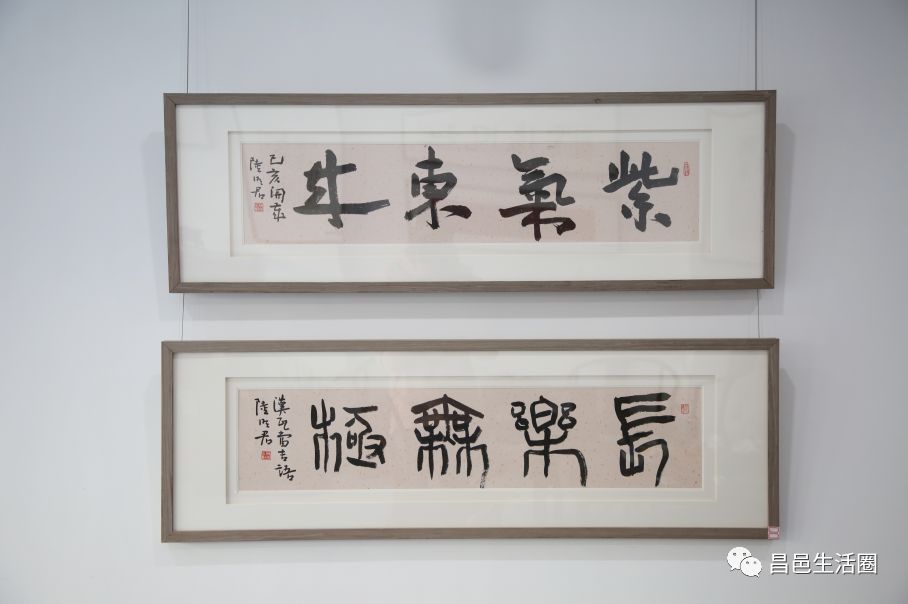 紫氣東来
己亥開歲
陸明君
長樂無極
漢瓦當吉語
陸明君
昌邑生活圈